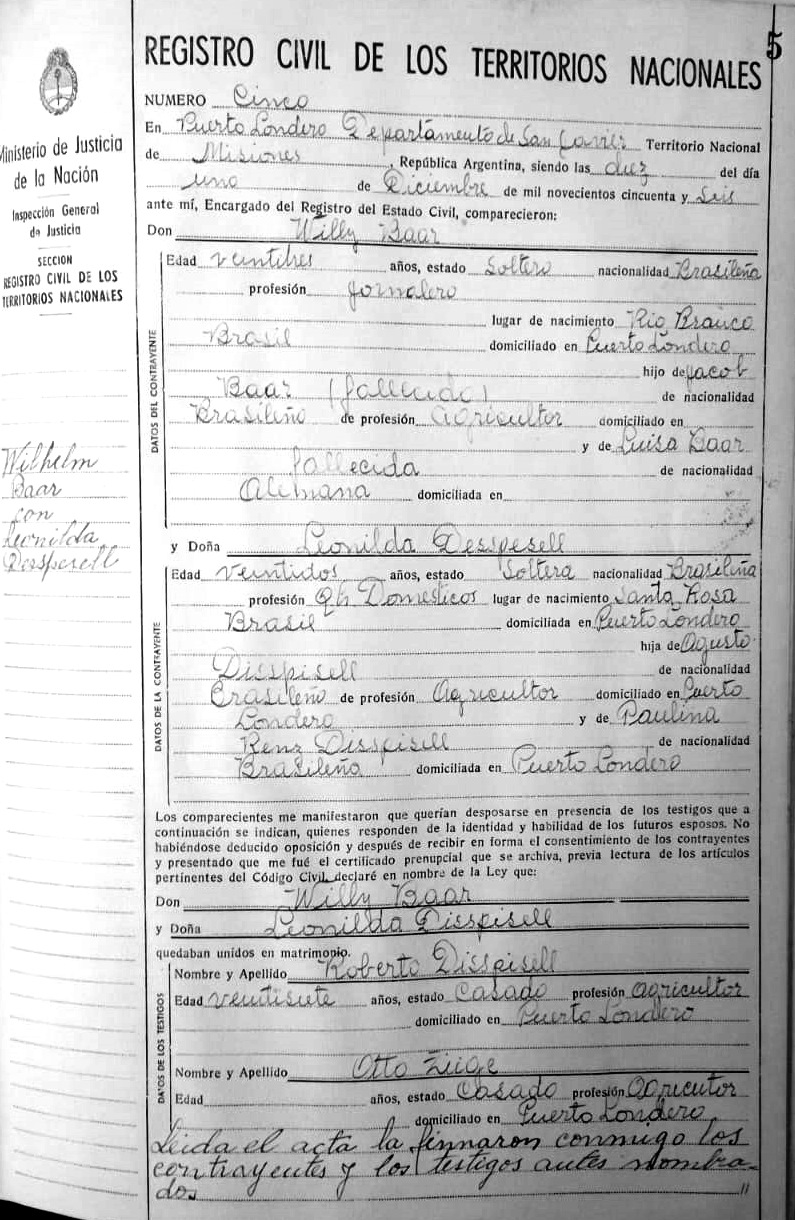 5
REGISTRO CIVIL DE LOS TERRITORIOS NACIONALES
Ministerio de Justicia
de la Nación
Inspección General
de Justicia
SECCION
REGISTRO CIVIL DE LOS
TERRITORIOS NACIONALES
Wilhelm
Baar
con
Leonilda
Desspesell
NUMERO Cinco
En Puerto Londero Departamento de San Javier Territorio Nacional
de Misiones, República Argentina, siendo las diez del día
uno de Diciembre de mil novecientos cincuenta y Seis
ante mí, Encargado del Registro del Estado Civil, comparecieron:
Don Willy Baar
DATOS DEL CONTRAYENTE
Edad veintitres años, estado Soltero nacionalidad Brasileña
profesión Jornalero
lugar de nacimiento Rio Branco
Brasil domiciliado en Puerto Londero
hijo de Jacob
Baar (fallecido) de nacionalidad
Brasileño de profesión Agricultor domiciliado en
y de Luisa Baar
fallecida de nacionalidad
Alemana domiciliada en
y Doña Leonilda Desspesell
DATOS DE LA CONTRAYENTE
Edad veintidos años, estado Soltera nacionalidad Brasileña
profesión Qh Domesticos lugar de nacimiento Santa Rosa
Brasil domiciliada en Puerto Londero
hija de Agusto
Disspisell de nacionalidad
Brasileño de profesión Agricultor domiciliado en Puerto
Londero y de Paulina
Renz Disspisell de nacionalidad
Brasileña domiciliada en Puerto Londero
Los comparecientes me manifestaron que querían desposarse en presencia de los testigos que a
continuación se indican, quienes responden de la identidad y habilidad de los futuros esposos. No
habiéndose deducido oposición y después de recibir en forma el consentimiento de los contrayentes
y presentado que me fué el certificado prenupcial que se archiva, previa lectura de los artículos
pertinentes del Código Civil, declaré en nombre de la Ley que:
Don Willy Baar
y Doña Leonilda Disspisell
quedaban unidos en matrimonio.
DATOS DE LOS TESTIGOS
Nombre y Apellido Roberto Disspisell
Edad ventisiete años, estado Casado profesión Agricultor
domiciliado en Puerto Londero
Nombre y Apellido Otto Zuige
Edad años, estado Casado profesión Agricutor
domiciliado en Puerto Londero
Leida el acta la finnaron conmigo los
contrayentes y los testigos antes nombra-
dos "